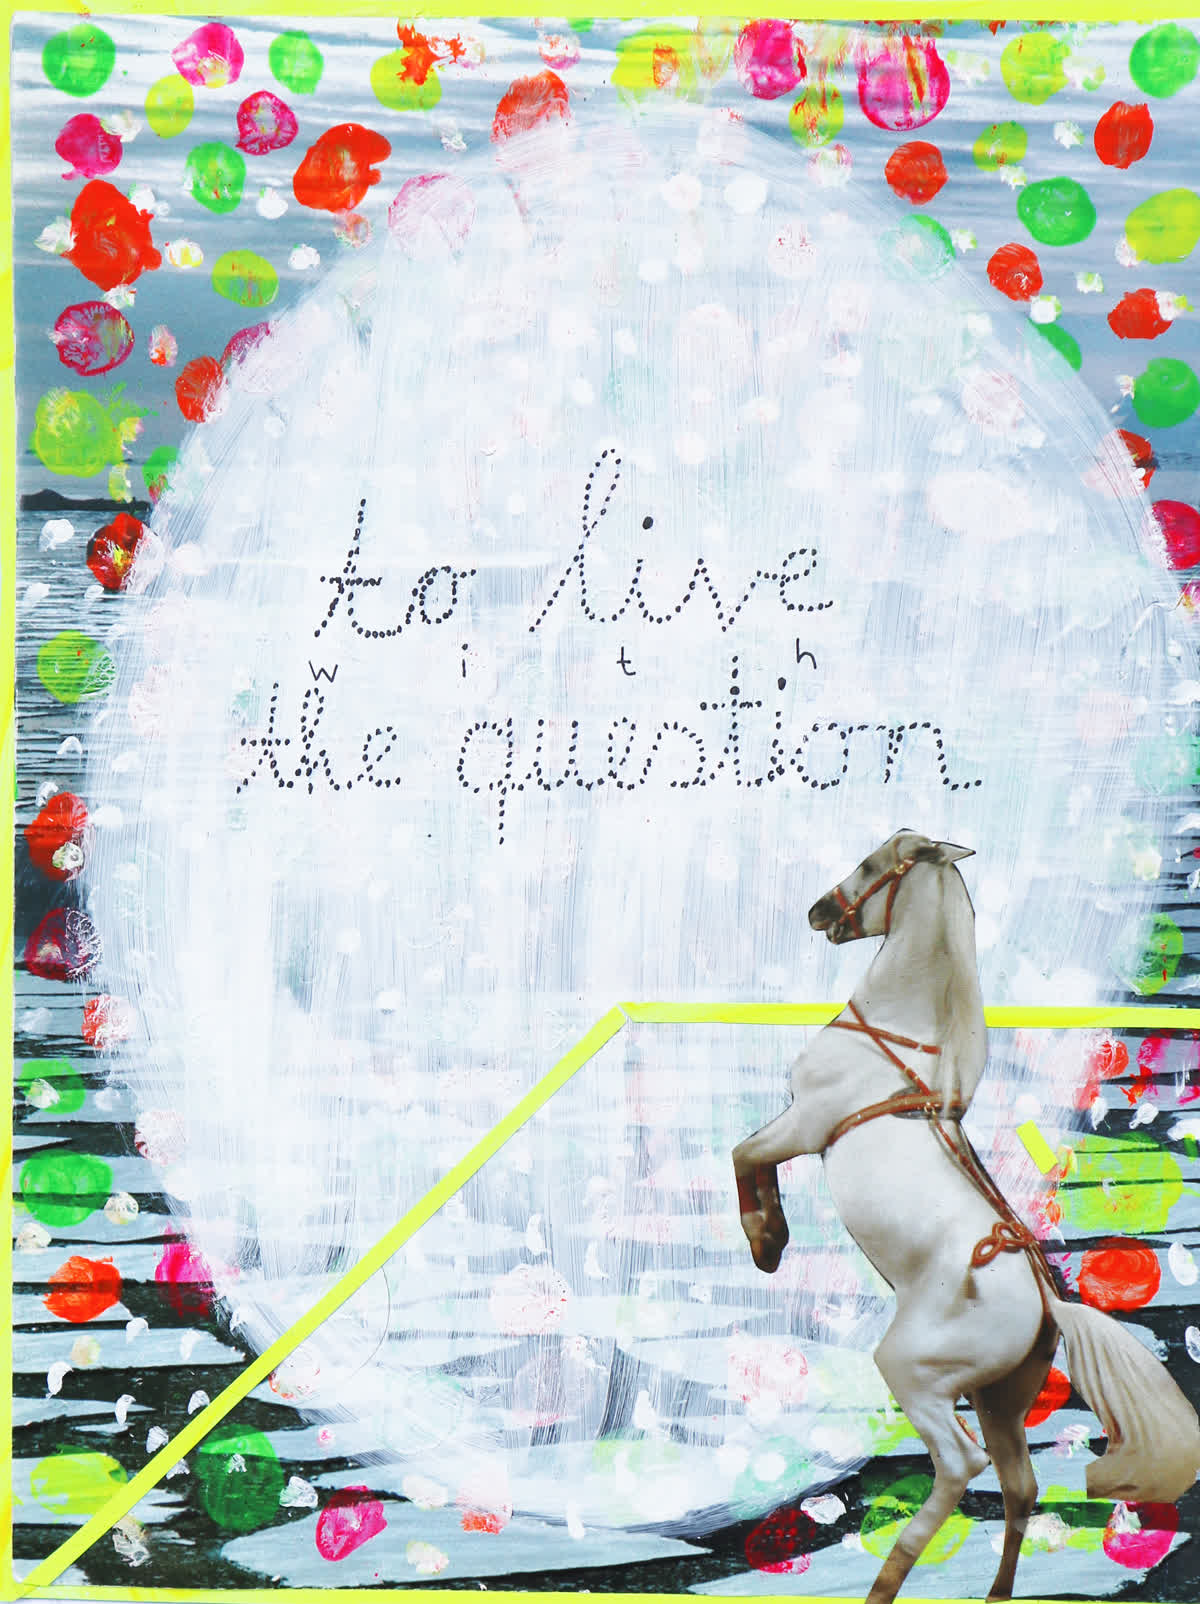 to live
with
the question